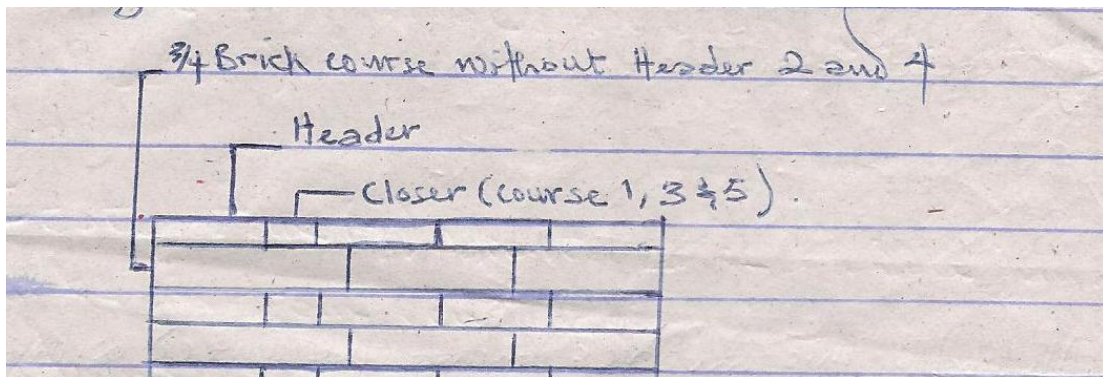 3/4 Brick course without Header 2 and 4
Header
Closer (course 1, 3 & 5).